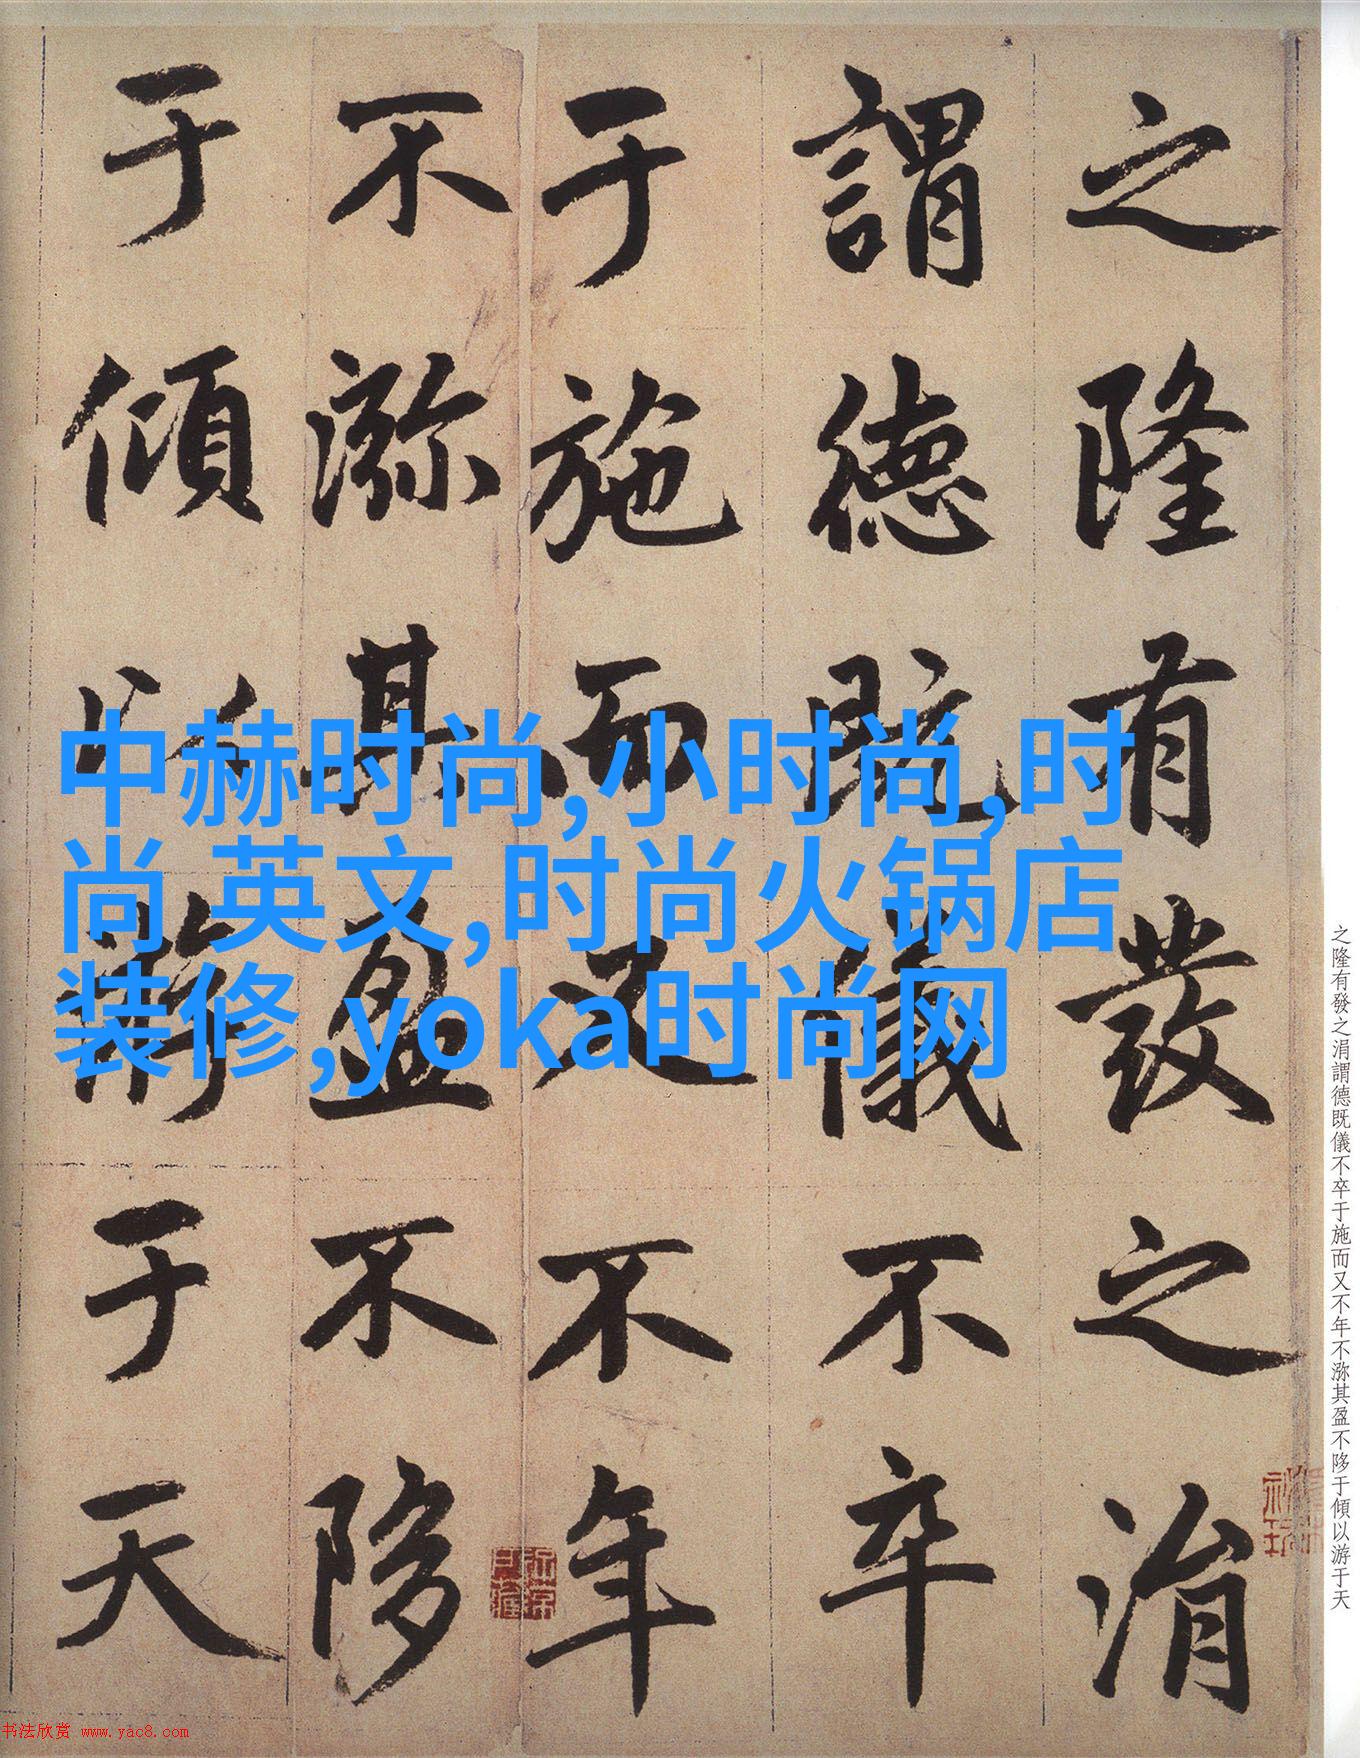 之隆有發之涓
謂德既儀不卒
于施而又不年
不瀰其盈不陊
于傾以游于天
中赫时尚,小时尚,时
尚 英文,时尚火锅店
装修,yoka时尚网
之隆有發之涓謂德既儀不卒于施而又不年不瀰其盈不陊于傾以游于天
书法欣赏 www.yac8.com